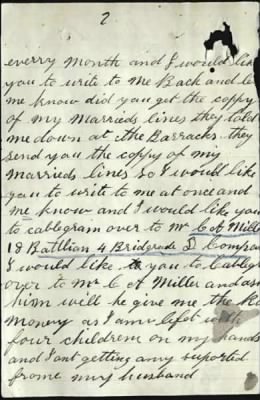 2
everry month and I would lik
you to write to me Back and le
me know did you get the coppy
of my Marrieds lines they told
me down at the Barracks they
send you the coppy of my
Marrieds lines so I would like
you to write to me at once and
me know and I would like you
to cablegram over to Mr C A Mill
18 Battlian 4 Bridgrade D Compan
I would like you to Cableg
over to Mr C A Miller and as
him will he give me the
Monery as I am left with
four children on my hands
and I ant getting any suported
frome my husband